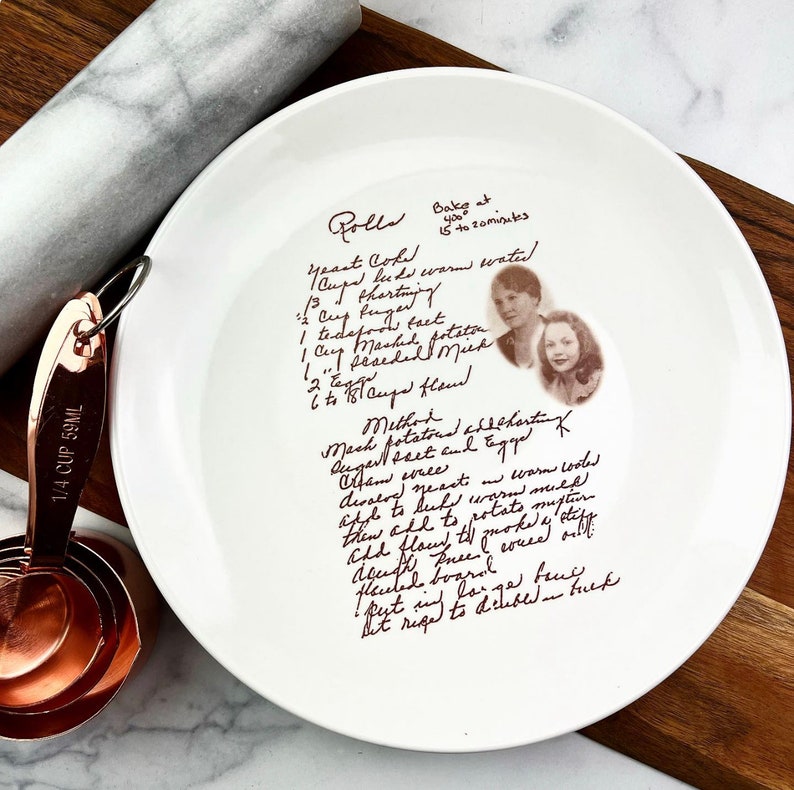 Rolls
Bake at
400°
15 to 20 minutes
Yeast Cake
1 Cups luke warm water
" shortning
Cup Sugar
1 teaspoon salt
1 Cup Mashed potatou
1 " scaeded Milk
2 Eggs
6 to 8 Cups flour
Method
Mash potatous add shortning
sugar salt and Eggs
Cream well
disolve yeast in warm water
add to luke warm milk
then add to potato mixture
add flour to make a stiff
dough kneed well on
flouled board
put in large bowl
let rise to double in bulk
1/4 CUP 59ML